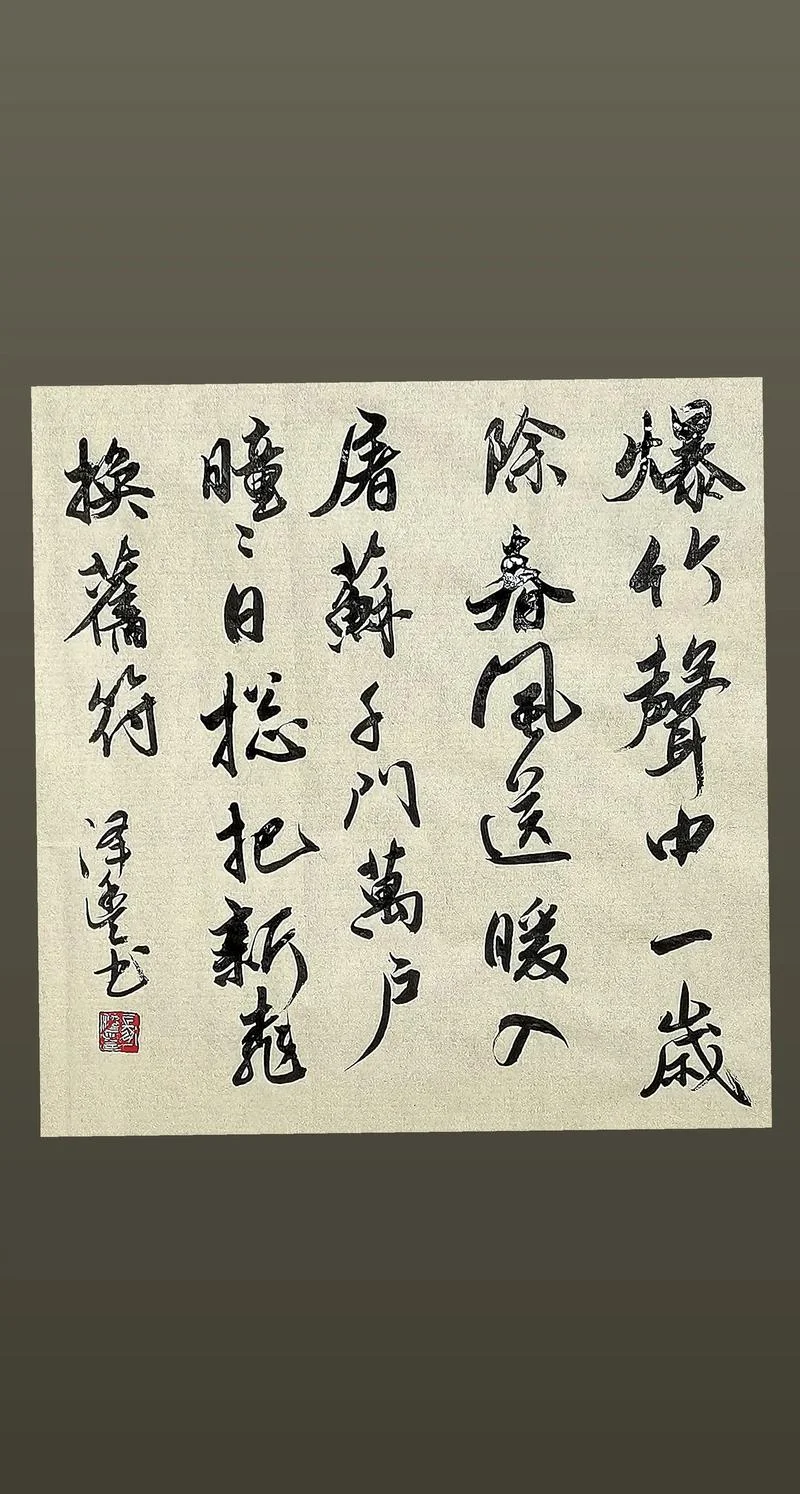 爆竹聲中一歲
除春風送暖入
屠蘇千門萬戶
瞳〻日摠把新桃
換舊符
澤豐书